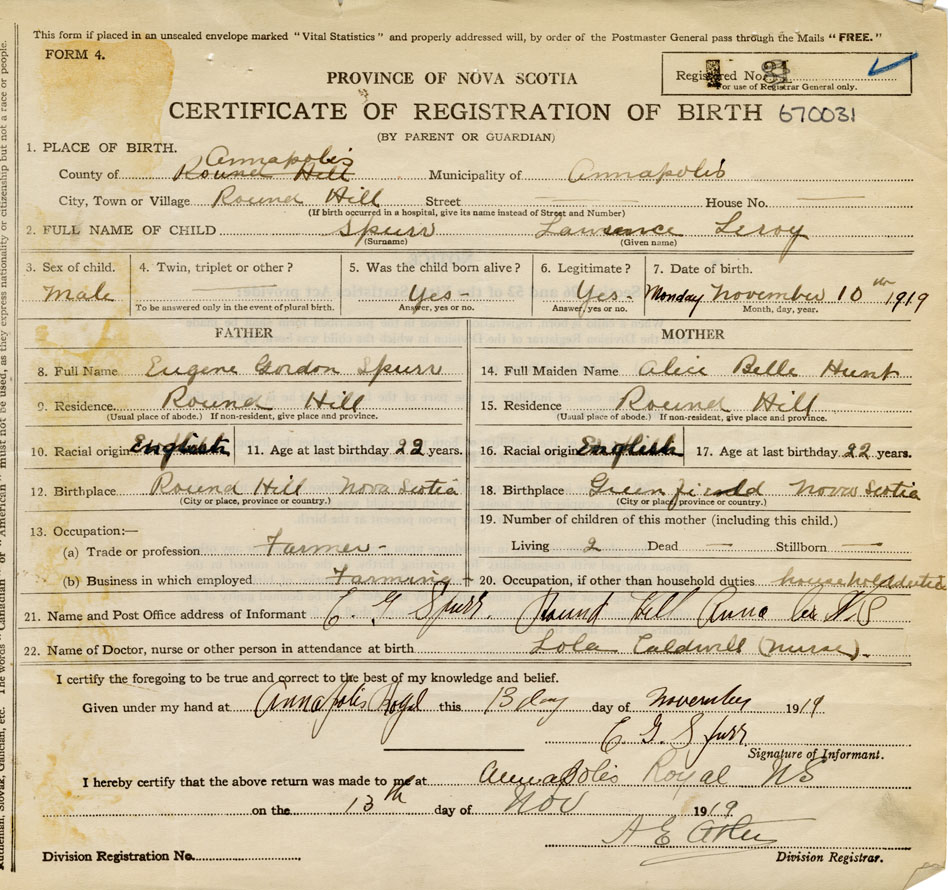 This form if placed in an unsealed envelope marked "Vital Statistics" and properly addressed will, by order of the Postmaster General pass through the Mails "FREE."
FORM 4.
Registered No.
For use of Registrar General only.
PROVINCE OF NOVA SCOTIA
CERTIFICATE OF REGISTRATION OF BIRTH 670031
(BY PARENT OR GUARDIAN)
1. PLACE OF BIRTH.
Annapolis
County of Round Hill Municipality of Annapolis
City, Town or Village Round Hill Street — House No. —
(If birth occurred in a hospital, give its name instead of Street and Number)
2. FULL NAME OF CHILD Spurr Lawrence Leroy
(Surname) (Given name)
3. Sex of child. 4. Twin, triplet or other? 5. Was the child born alive? 6. Legitimate? 7. Date of birth.
Male — Yes - Yes - Monday November 10th 1919
To be answered only in the event of plural birth. Answer, yes or no. Answer, yes or no. Month, day, year.
FATHER MOTHER
8. Full Name Eugene Gordon Spurr 14. Full Maiden Name Alice Belle Hunt
9. Residence. Round Hill 15. Residence Round Hill
(Usual place of abode.) If non-resident, give place and province. (Usual place of abode.) If non-resident, give place and province.
10. Racial origin English 11. Age at last birthday 22 years. 16. Racial origin English 17. Age at last birthday 22 years.
12. Birthplace Round Hill Nova Scotia 18. Birthplace Greenfield Nova Scotia
(City or place, province or country.) (City or place, province or country.)
13. Occupation:— 19. Number of children of this mother (including this child.)
(a) Trade or profession Farmer - Living 2 Dead — Stillborn —
(b) Business in which employed Farming 20. Occupation, if other than household duties household duties
21. Name and Post Office address of Informant E. G. Spurr Round Hill Anna Co N.S
22. Name of Doctor, nurse or other person in attendance at birth Lola Caldwell (nurse).
I certify the foregoing to be true and correct to the best of my knowledge and belief.
Given under my hand at Annapolis Royal this 13 day day of November 1919
E. G. Spurr
Signature of Informant.
I hereby certify that the above return was made to me at Annapolis Royal NS
on the 13th day of Nov 1919
A E
Division Registration No. Division Registrar.
Ruthenian, Slovak, Galician, etc. The words "Canadian" or "American" must not be used, as they express nationality or citizenship but not a race or people.